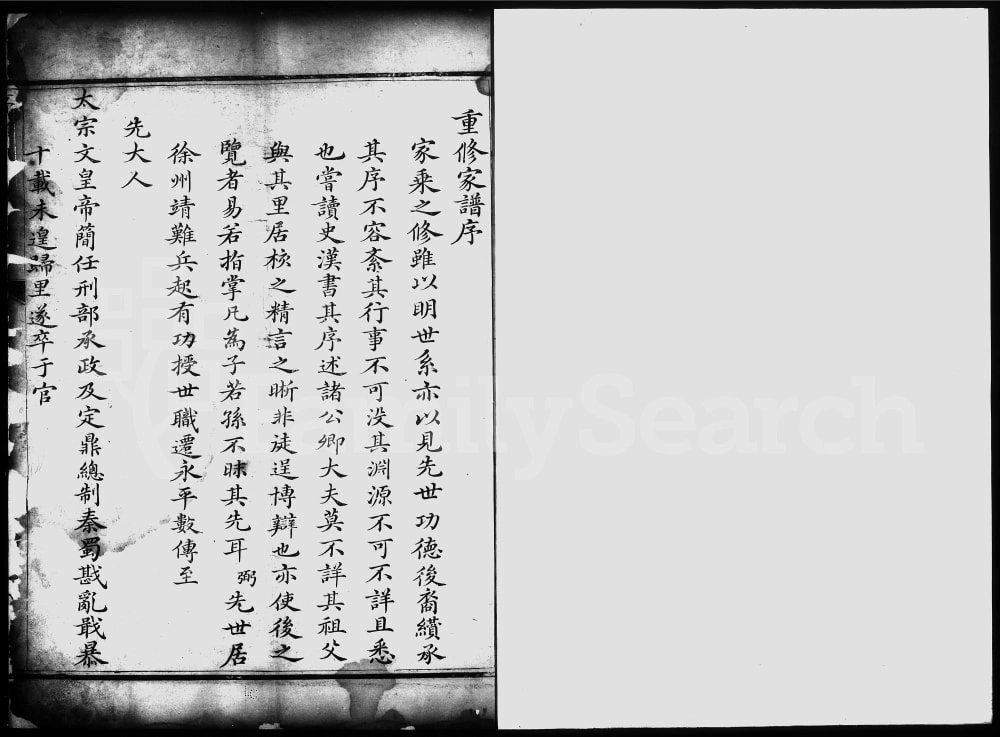 重修家譜序
家乘之修雖以明世系亦以見先世功德後裔纘承
其序不容紊其行事不可没其淵源不可不詳且悉
也嘗讀史漢書其序述諸公卿大夫莫不詳其祖父
與其里居核之精言之晰非徒逞博辯也亦使後之
覽者易若指掌凡為子若孫不昧其先耳弼先世居
徐州靖難兵起有功授世職遷永平數傳至
先大人
太宗文皇帝簡任刑部承政及定鼎總制秦蜀戡亂戢暴
十載未遑歸里遂卒于官
FamilySearch